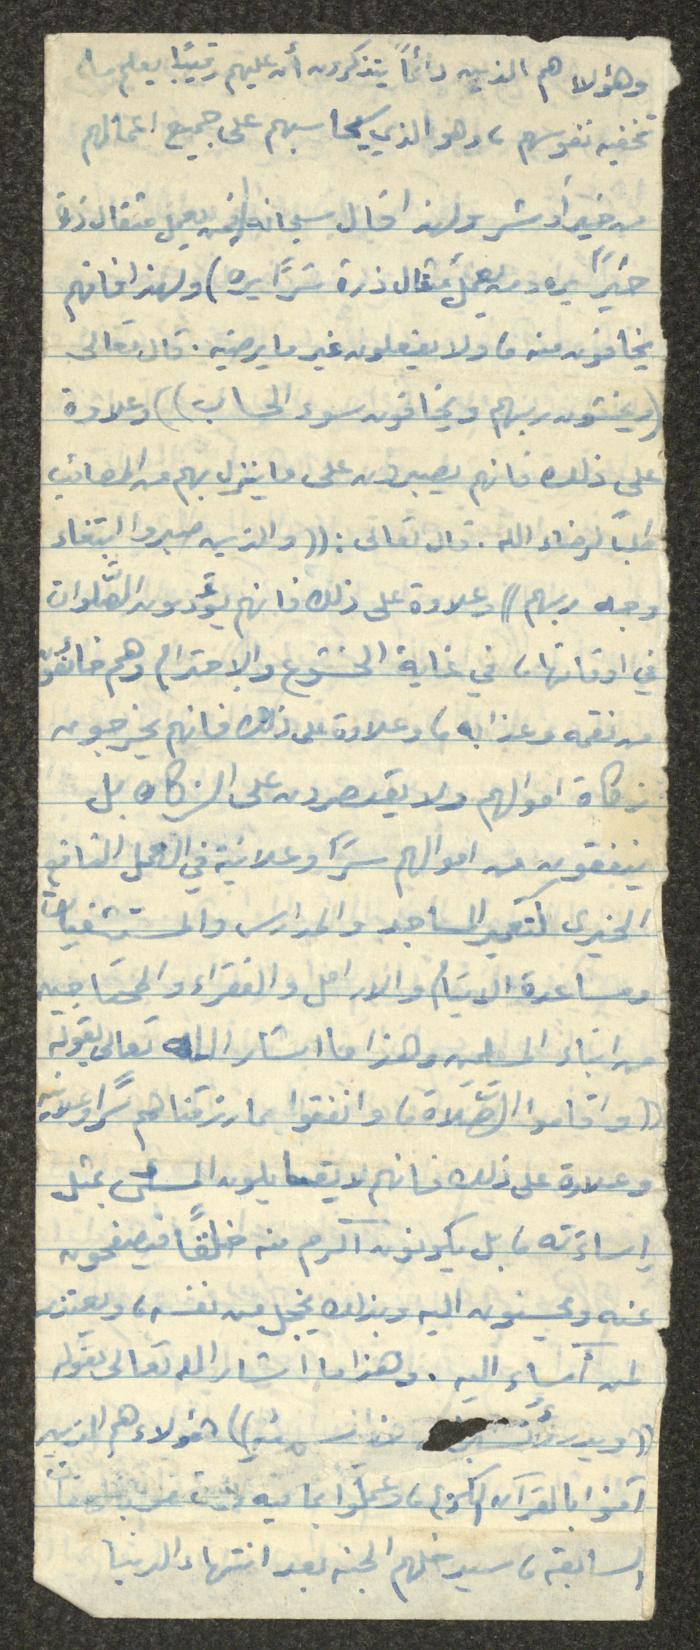 وهؤلاء هم الذين دائماً يتذكرون أن عليهم رقيبًا يعلم ما
تخفيه نفوسهم، وهو الذي يحاسبهم على جميع اعمالهم
من خير أو شر ولهذا قال سبحانه (فمن يعمل مثقال ذرة
خيرًا يره ومن يعمل مثقال ذرة شرًا يره) ولهذا فانهم
يخافون منه، ولا يفعلون غير ما يرضيه. قال تعالى
(ويخشون ربهم ويخافون سوء الحساب)) وعلاوة
على ذلك فانهم يصبرون على ما ينزل بهم من المصائب
طلبًا لرضاء الله. قال تعالى: ((والذين صبروا ابتغاء
وجه ربهم)) وعلاوة على ذلك فانهم يؤدون الصَّلوات
في اوقاتها، في غاية الخشوع والاحترام وهم خائفون
من نقمه وعذابه، وعلاوة على ذلك فانهم يخرجون
زكاة اموالهم ولا يقتصرون على الزكاة بل
ينفقون من اموالهم سرًا وعلانية في العمل النافع
الخيري كتعمير المساجد والمدارس والمستشفيات
ومساعدة الايتام والارامل والفقراء والمحتاجين
من ابناء المسلمين وهذا ما اشار الله تعالى بقوله
((واقاموا الصَّلاة، وانفقوا مما رزقناهم سرًا وعلانية
وعلاوة على ذلك فانهم لا يقابلون المسئ بمثل
إساءته، بل يكونون اكرم منه خلقًا فيصفحون
عنه ويحسنون اليه وبذلك يخجل من نفسه، ويعتذر
لمن أساء اليه. وهذا ما اشار الله تعالى بقوله
((ويدرؤن هؤلاء هم الذين
آمنوا بالقرآن الكريم، وعملوا بما فيه
السابقة، سيدخلهم الجنه بعد انتهاء الدنيا